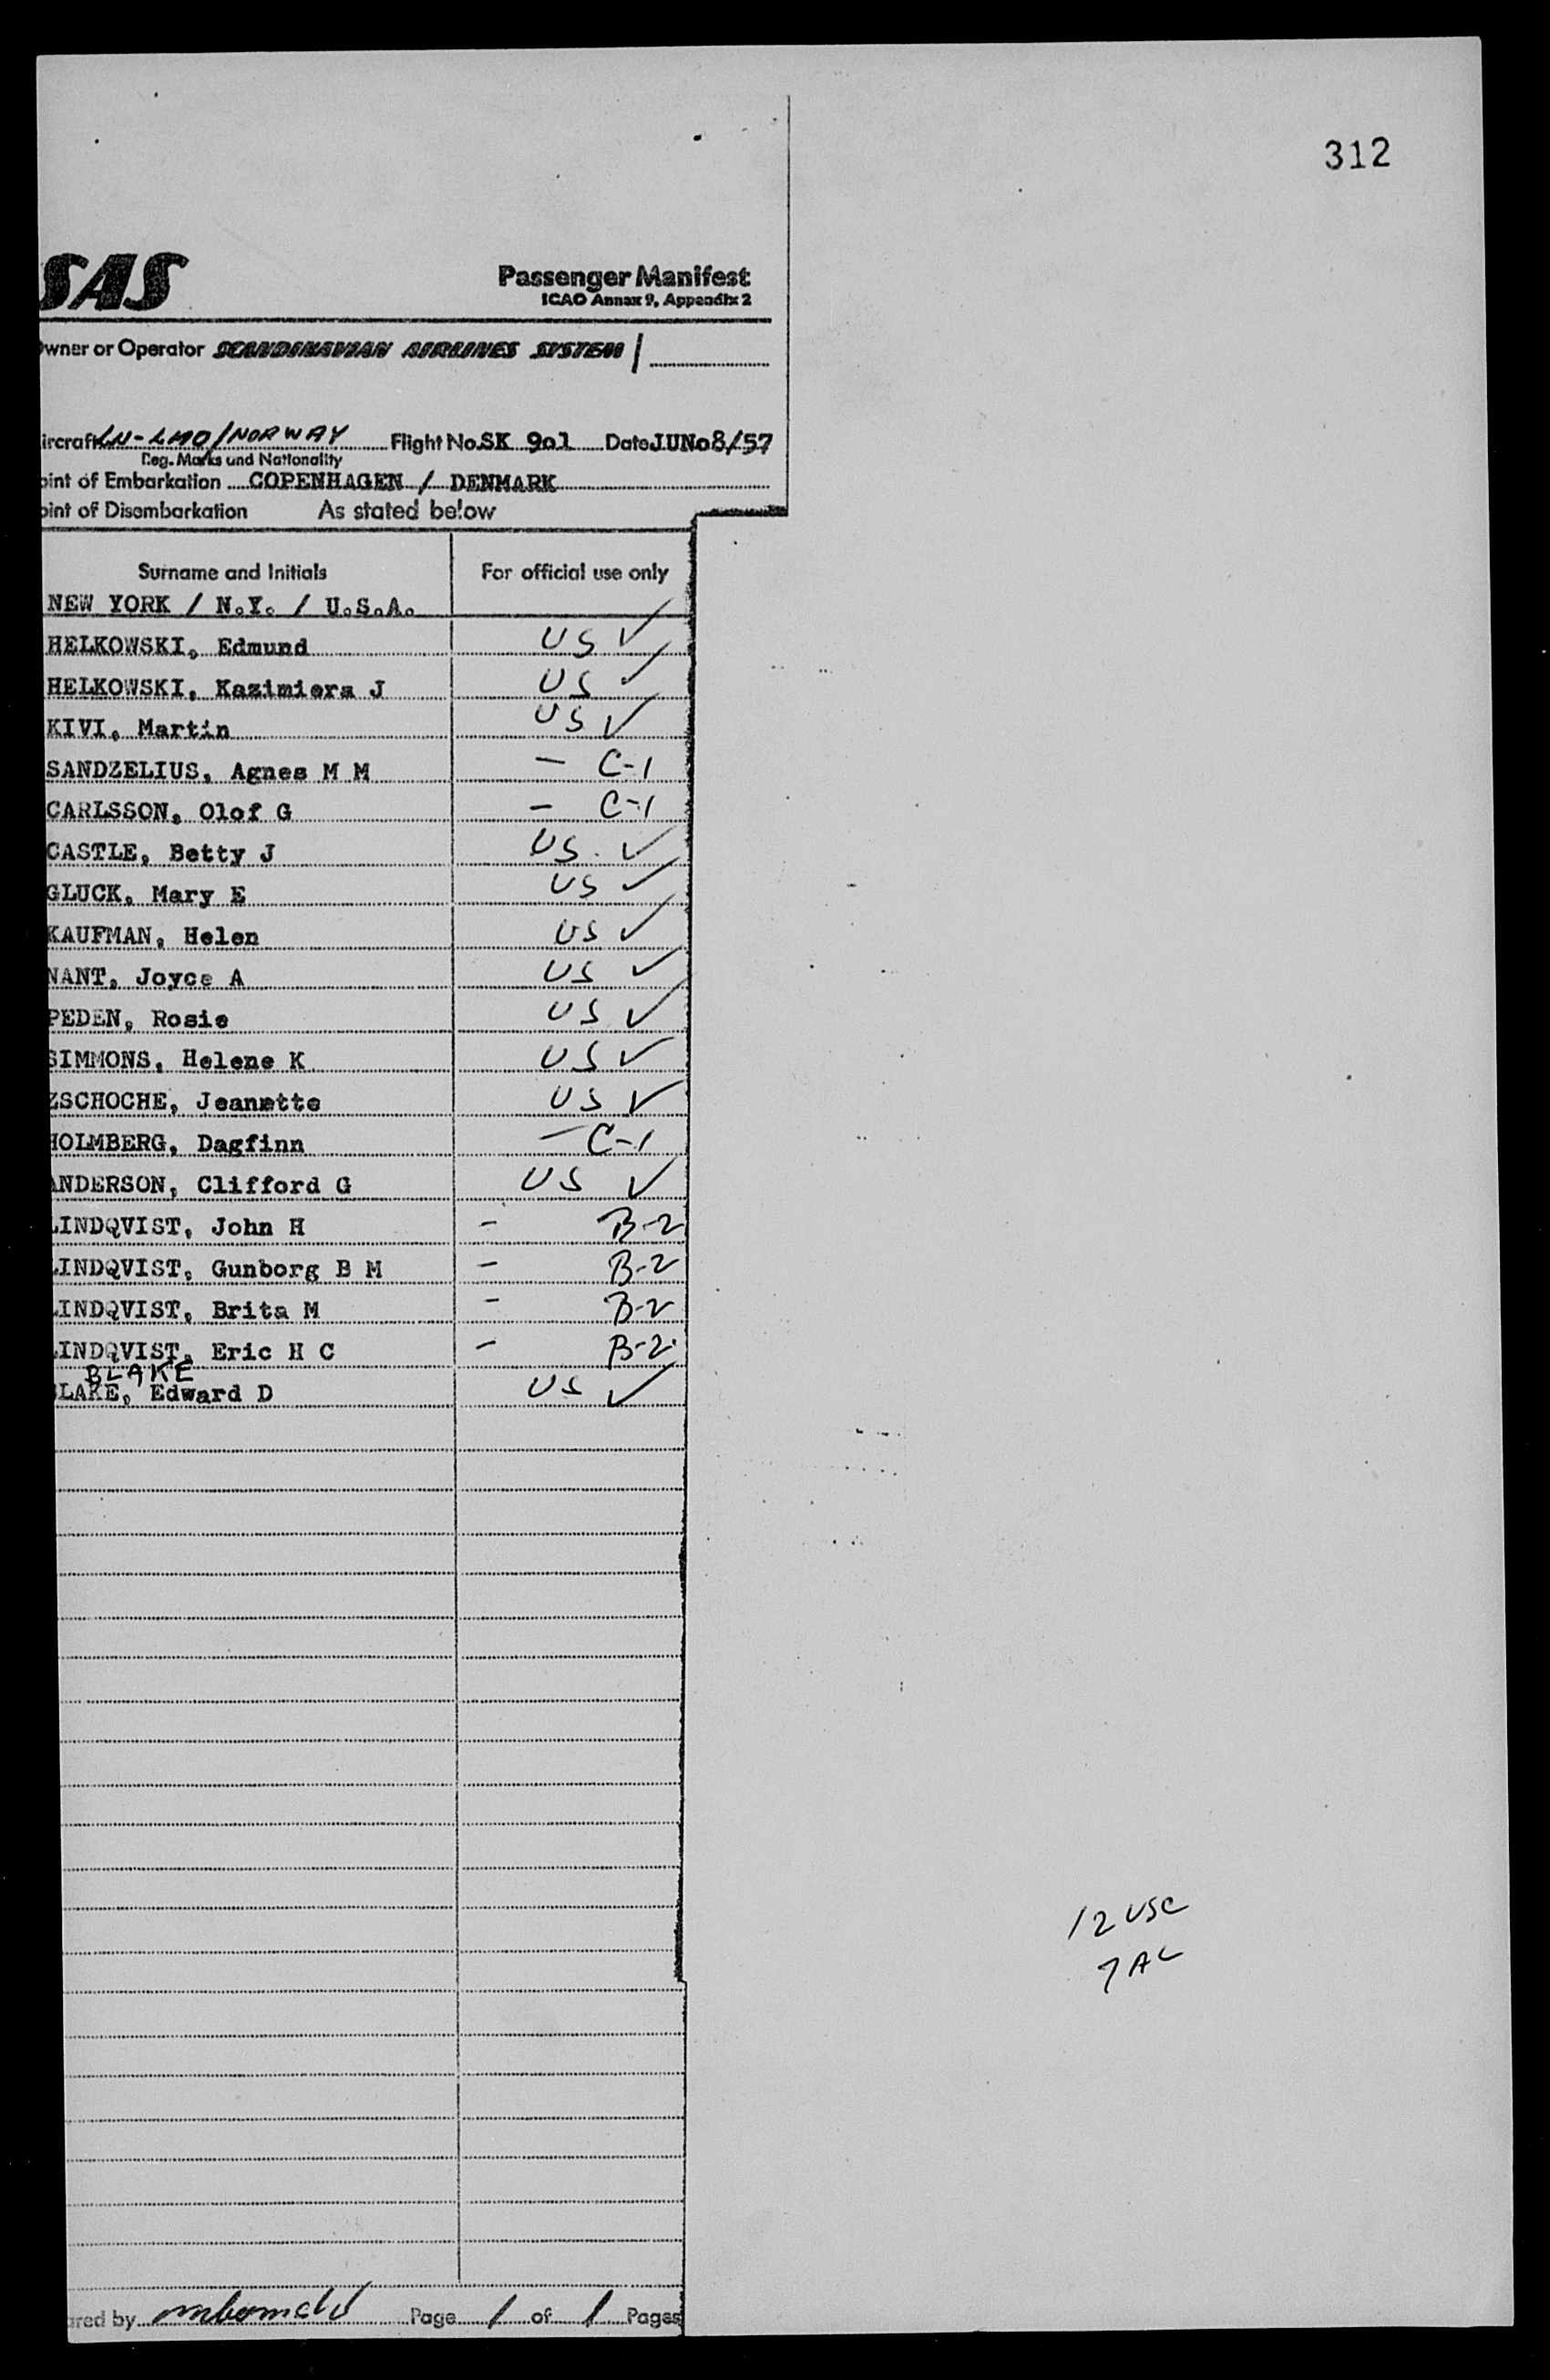 312
SAS
Passenger Manifest
ICAO Annex 9, Appendix 2
wner or Operator SCANDINAVIAN AIRLINES SYSTEM /
ircraft LN-LMO/NORWAY Flight No. SK 901 Date JUN 08/57
Reg. Marks and Nationality
oint of Embarkation COPENHAGEN / DENMARK
oint of Disembarkation As stated below
Surname and Initials For official use only
NEW YORK / N.Y. / U.S.A.
HELKOWSKI, Edmund US ✓
HELKOWSKI, Kazimiera J US ✓
KIVI, Martin US ✓
SANDZELIUS, Agnes M M — C-1
CARLSSON, Olof G — C-1
CASTLE, Betty J US. ✓
GLUCK, Mary E US ✓
KAUFMAN, Helen US ✓
NANT, Joyce A US ✓
PEDEN, Rosie US ✓
SIMMONS, Helene K US ✓
ZSCHOCHE, Jeanette US ✓
HOLMBERG, Dagfinn — C-1
ANDERSON, Clifford G US ✓
LINDQVIST, John H - B-2
LINDQVIST, Gunborg B M - B-2
LINDQVIST, Brita M - B-2
LINDQVIST, Eric H C - B-2
BLAKE
BLAKE, Edward D US ✓
12 USC
7 AL
ared by Page 1 of 1 Pages